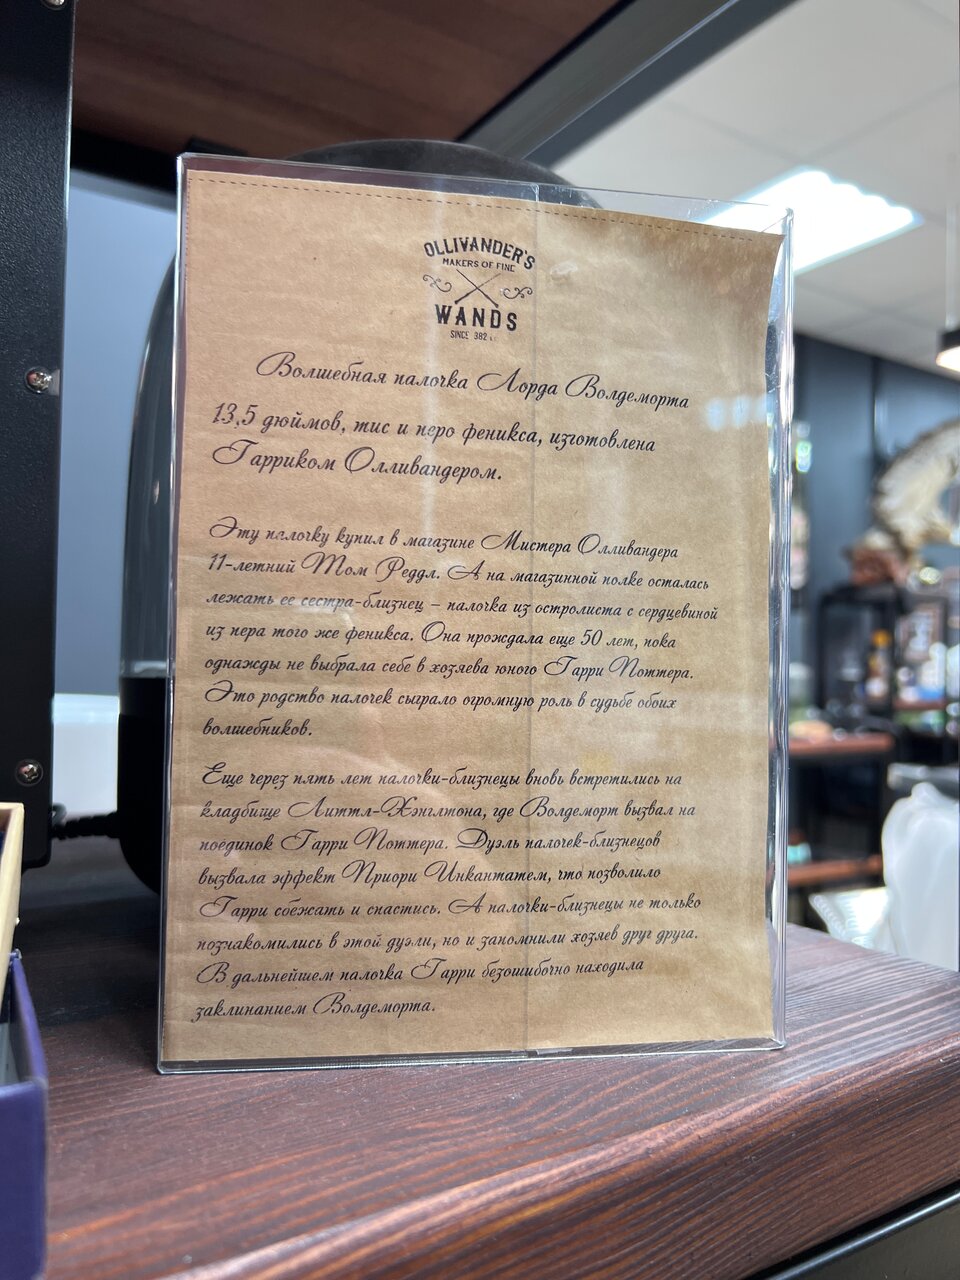 OLLIVANDER'S
MAKERS OF FINE
WANDS
SINCE 382
Волшебная палочка Лорда Волдеморта
13,5 дюймов, тис и перо феникса, изготовлена
Гарриком Олливандером.
Эту палочку купил в магазине Мистера Олливандера
11-летний Том Реддл. А на магазинной полке осталась
лежать ее сестра-близнец – палочка из остролиста с сердцевиной
из пера того же феникса. Она прождала еще 50 лет, пока
однажды не выбрала себе в хозяева юного Гарри Поттера.
Это родство палочек сыграло огромную роль в судьбе обоих
волшебников.
Еще через пять лет палочки-близнецы вновь встретились на
кладбище Литтл-Хэнглтона, где Волдеморт вызвал на
поединок Гарри Поттера. Дуэль палочек-близнецов
вызвала эффект Приори Инкантатем, что позволило
Гарри сбежать и спастись. А палочки-близнецы не только
познакомились в этой дуэли, но и запомнили хозяев друг друга.
В дальнейшем палочка Гарри безошибочно находила
заклинанием Волдеморта.